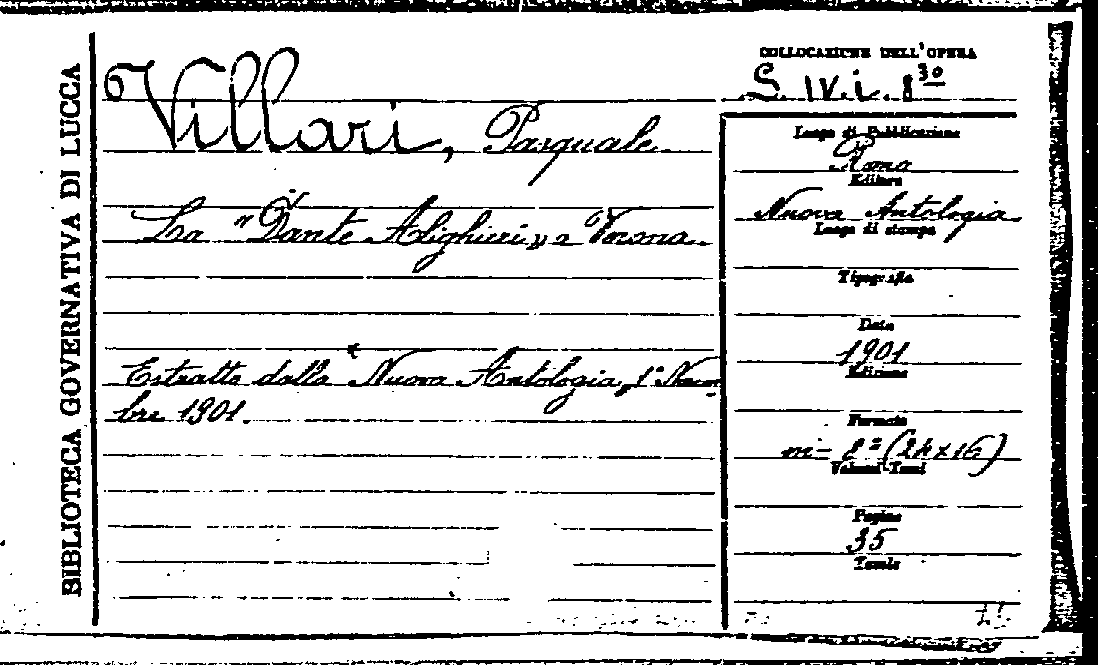 BIBLIOTECA GOVERNATIVA DI LUCCA
Villari, Pasquale
La "Dante Alighieri" a Verona.
Estratto dalla "Nuova Antologia" 1° Novem
bre 1901.
COLLOCAZIONE DELL'OPERA
S. IV. i. 8 30
Luogo di Pubblicazione
Roma
Editore
Nuova Antologia
Luogo di stampa
Tipografia
Data
1901
Edizione
Formato
in-8° (24x16)
Volumi Tomi
Pagine
35
Tavole